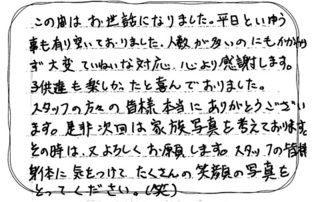 この度はお世話になりました。平日といゆう
事も有り空いておりました。人数が多いのにもかかわら
ず大変ていねいな対応、心より感謝します。
子供達も楽しかったと喜んでおりました。
スタッフの方々の皆様本当にありがとうござい
ます。是非次回は家族写真を考えております。
その時は、又よろしくお願します。スタッフの皆様
お体に気をつけてたくさんの笑顔の写真を
とってください。(笑)